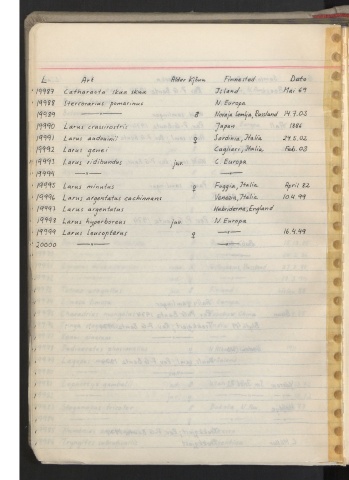 L Art Alder Kjønn Finnested Dato
19987 Catharacta skua skua Island Mai 69
19988 Stercorarius pomarinus N. Europa
19989 —"— ♂ Novaja Semlja, Russland 14.7.03
19990 Larus crassirostris Japan 1886
19991 Larus audouinii ♀ Sardinia, Italia 24.5.02
19992 Larus genei Cagliari, Italia Feb. 03
19993 Larus ridibundus juv C. Europa
19994 —"— —"—
19995 Larus minutus ♀ Foggia, Italia April 82
19996 Larus argentatus cachinnans Venezia, Italia 10.4.99
19997 Larus argentatus Hebriderna, England
19998 Larus hyperboreus juv N. Europa
19999 Larus leucopterus ♀ —"— 16.4.49
20000 —"— —"—